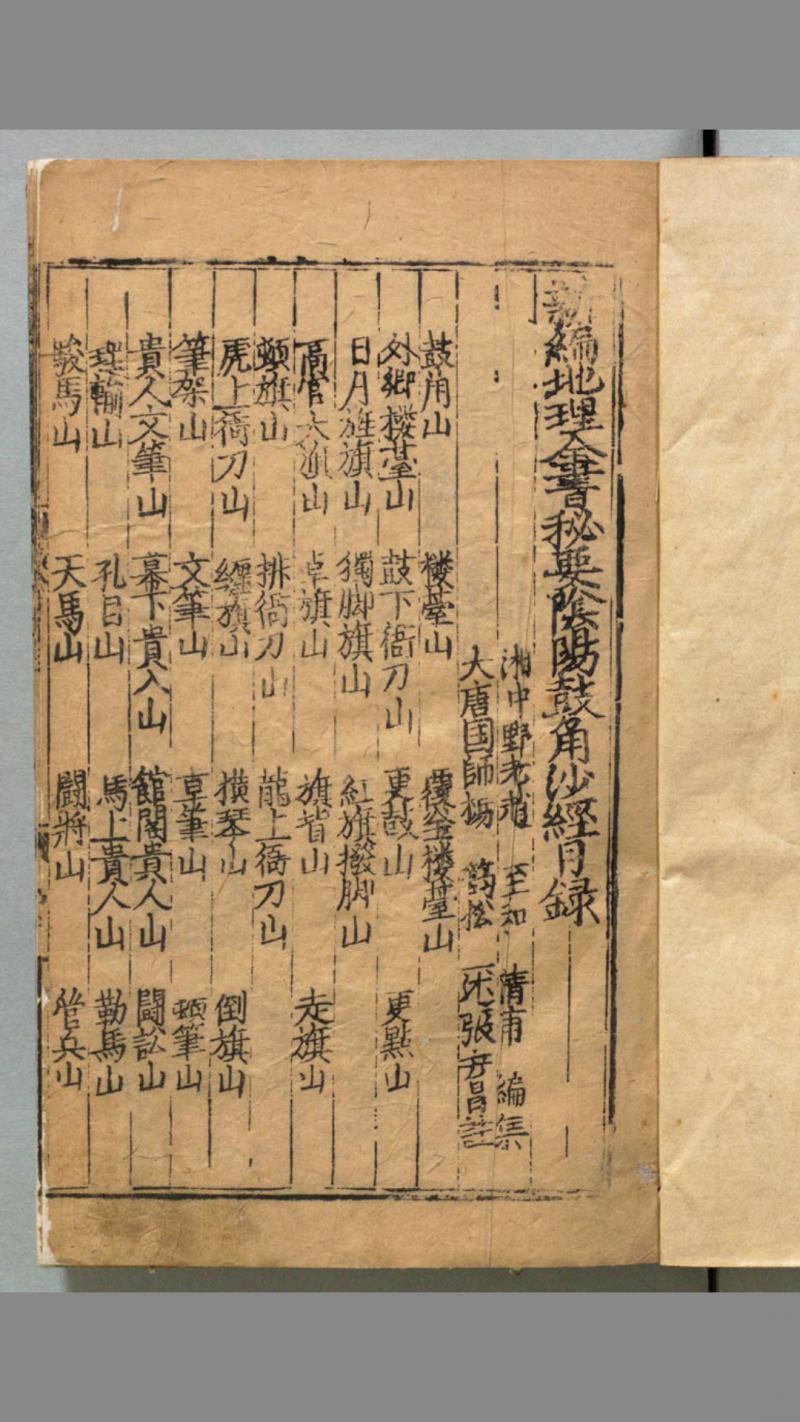 新編地理全書秘要陰陽鼓角沙經目録
湘中野老趙 至和 清甫 編集
大唐国師楊 筠松 張奇昌註
鼓角山 楼䑓山 覆金楼䑓山
外鄉楼䑓山 鼓下衙刀山 更鼓山 更點山
日月旌旗山 獨脚旗山 紅旗撥脚山
高官大旗山 卓旗山 旗山 走旗山
頓旗山 排衙刀山 龍上衙刀山
虎上衙刀山 纏旗山 橫琴山 倒旗山
筆架山 文筆山 卓筆山 頓筆山
貴人文筆山 幕下貴人山 館閣貴人山 鬪訟山
判山 孔目山 馬上貴人山 勒馬山
駿馬山 天馬山 鬪將山 管兵山